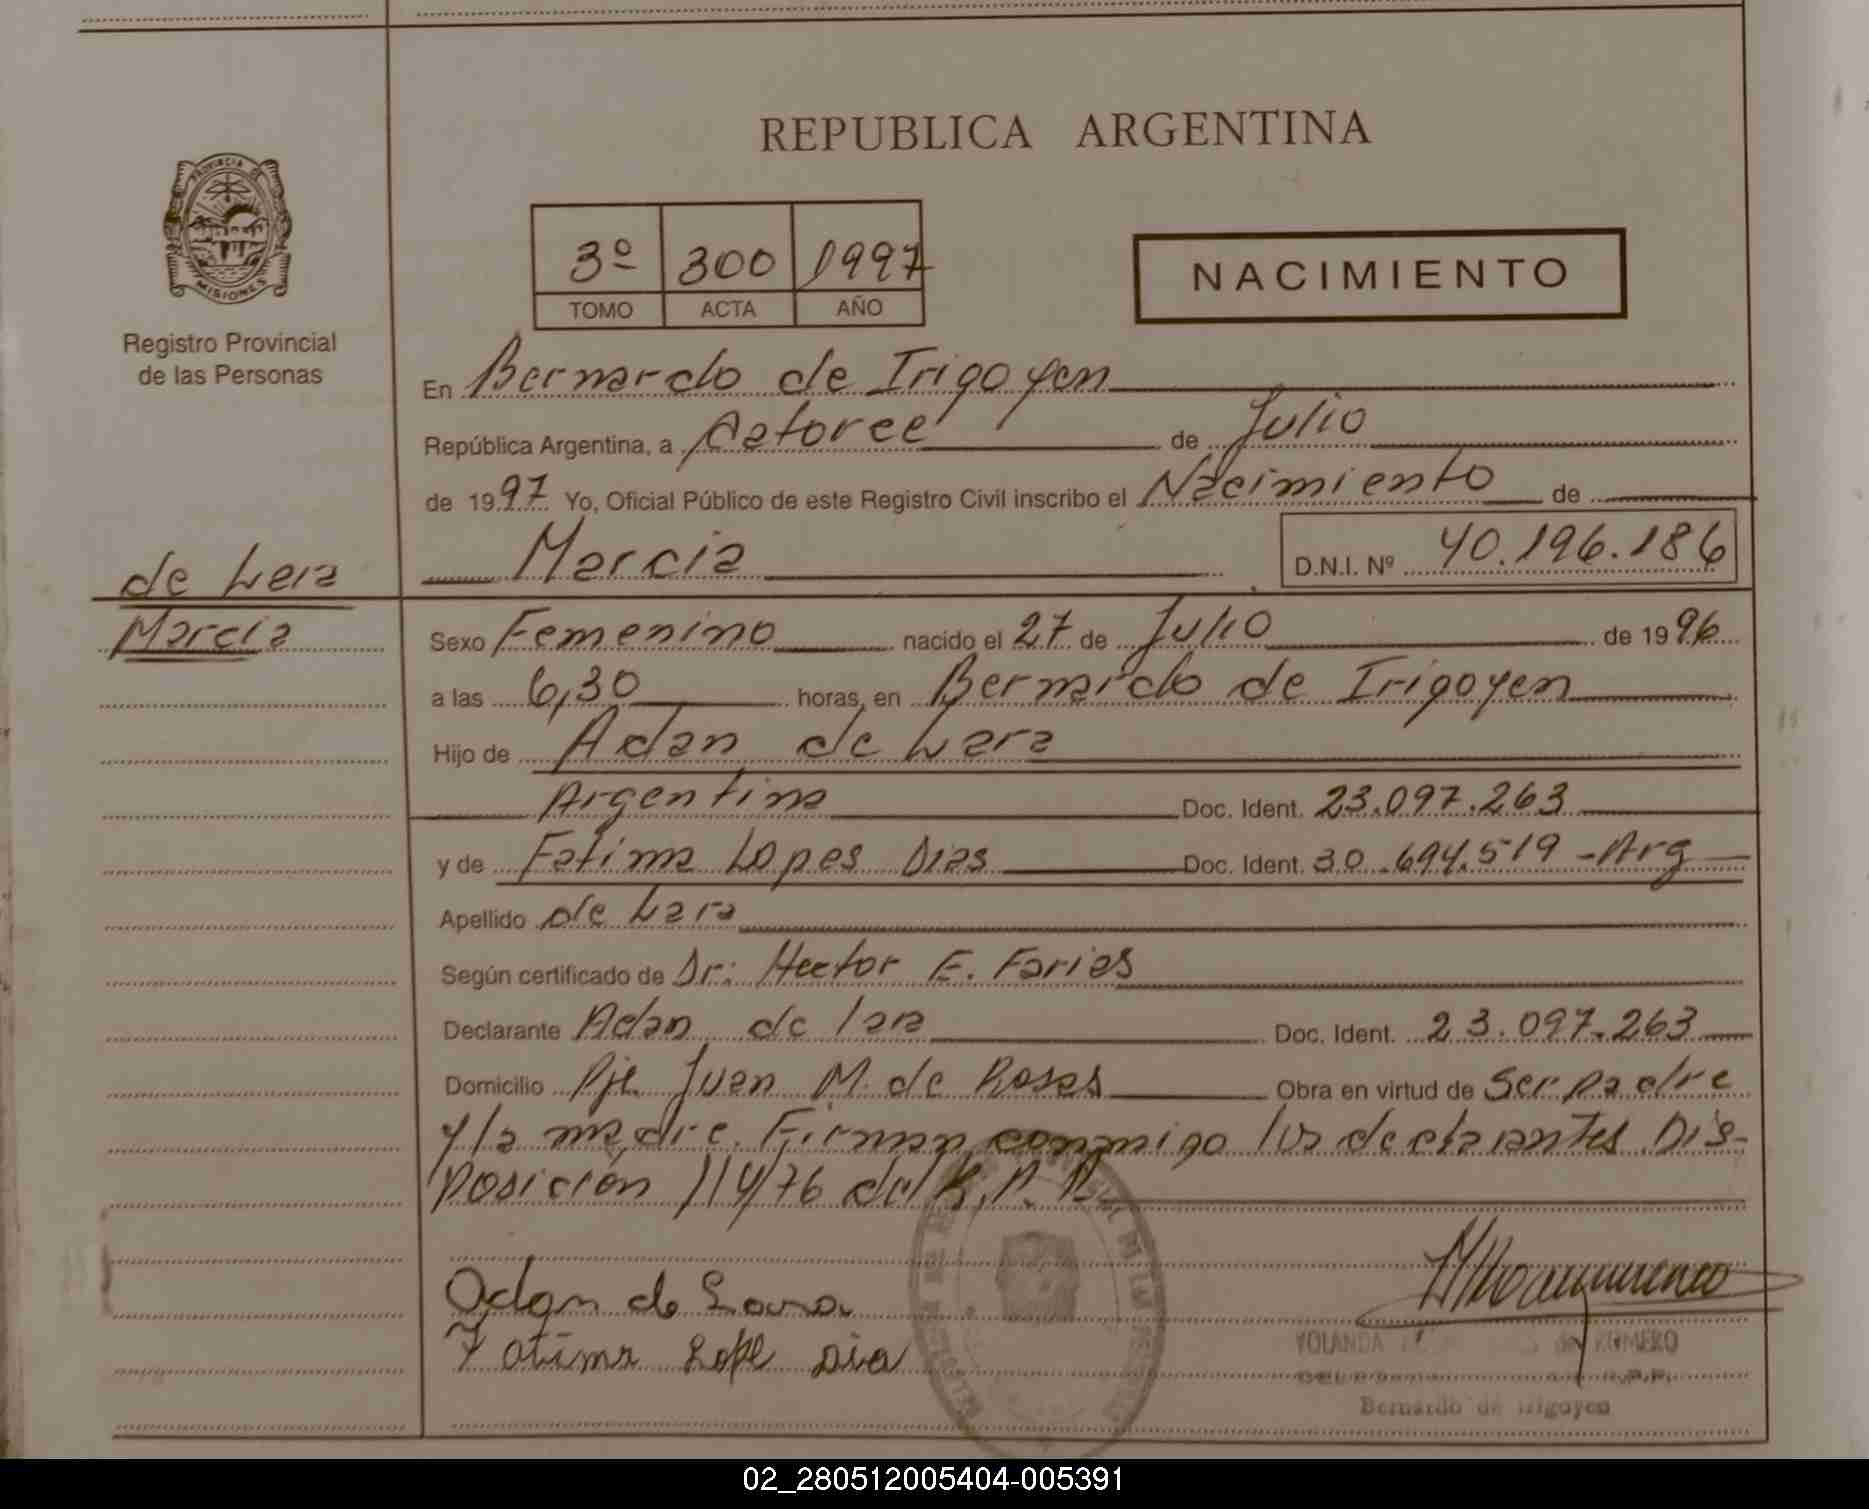 REPUBLICA ARGENTINA
PROVINCIA DE
MISIONES
Registro Provincial
de las Personas
3º 300 1997
TOMO ACTA AÑO
NACIMIENTO
En Bernardo de Irigoyen
República Argentina, a Catorce de Julio
de 1997 Yo, Oficial Público de este Registro Civil inscribo el Nacimiento de
Marcia D.N.I. Nº 40.196.186
de Lara
Marcia
Sexo Femenino nacido el 27 de Julio de 1996
a las 6,30 horas, en Bernardo de Irigoyen
Hijo de Adan de Lara
Argentina Doc. Ident. 23.097.263
y de Fatima Lopes Dias Doc. Ident. 30.694.519 - Arg
Apellido de Lara
Según certificado de Dr: Hector E. Farias
Declarante Adan de lara Doc. Ident. 23.097.263
Domicilio Pje. Juan M. de Rosas Obra en virtud de Ser padre
y la madre. Firman conmigo los declarantes. Dis-
posición 114/76 del R.P.P.
Adan de Lara
Fatima Lope Dia
YOLANDA ROMERO
R.P.P.
Bernardo de Irigoyen
02_280512005404-005391